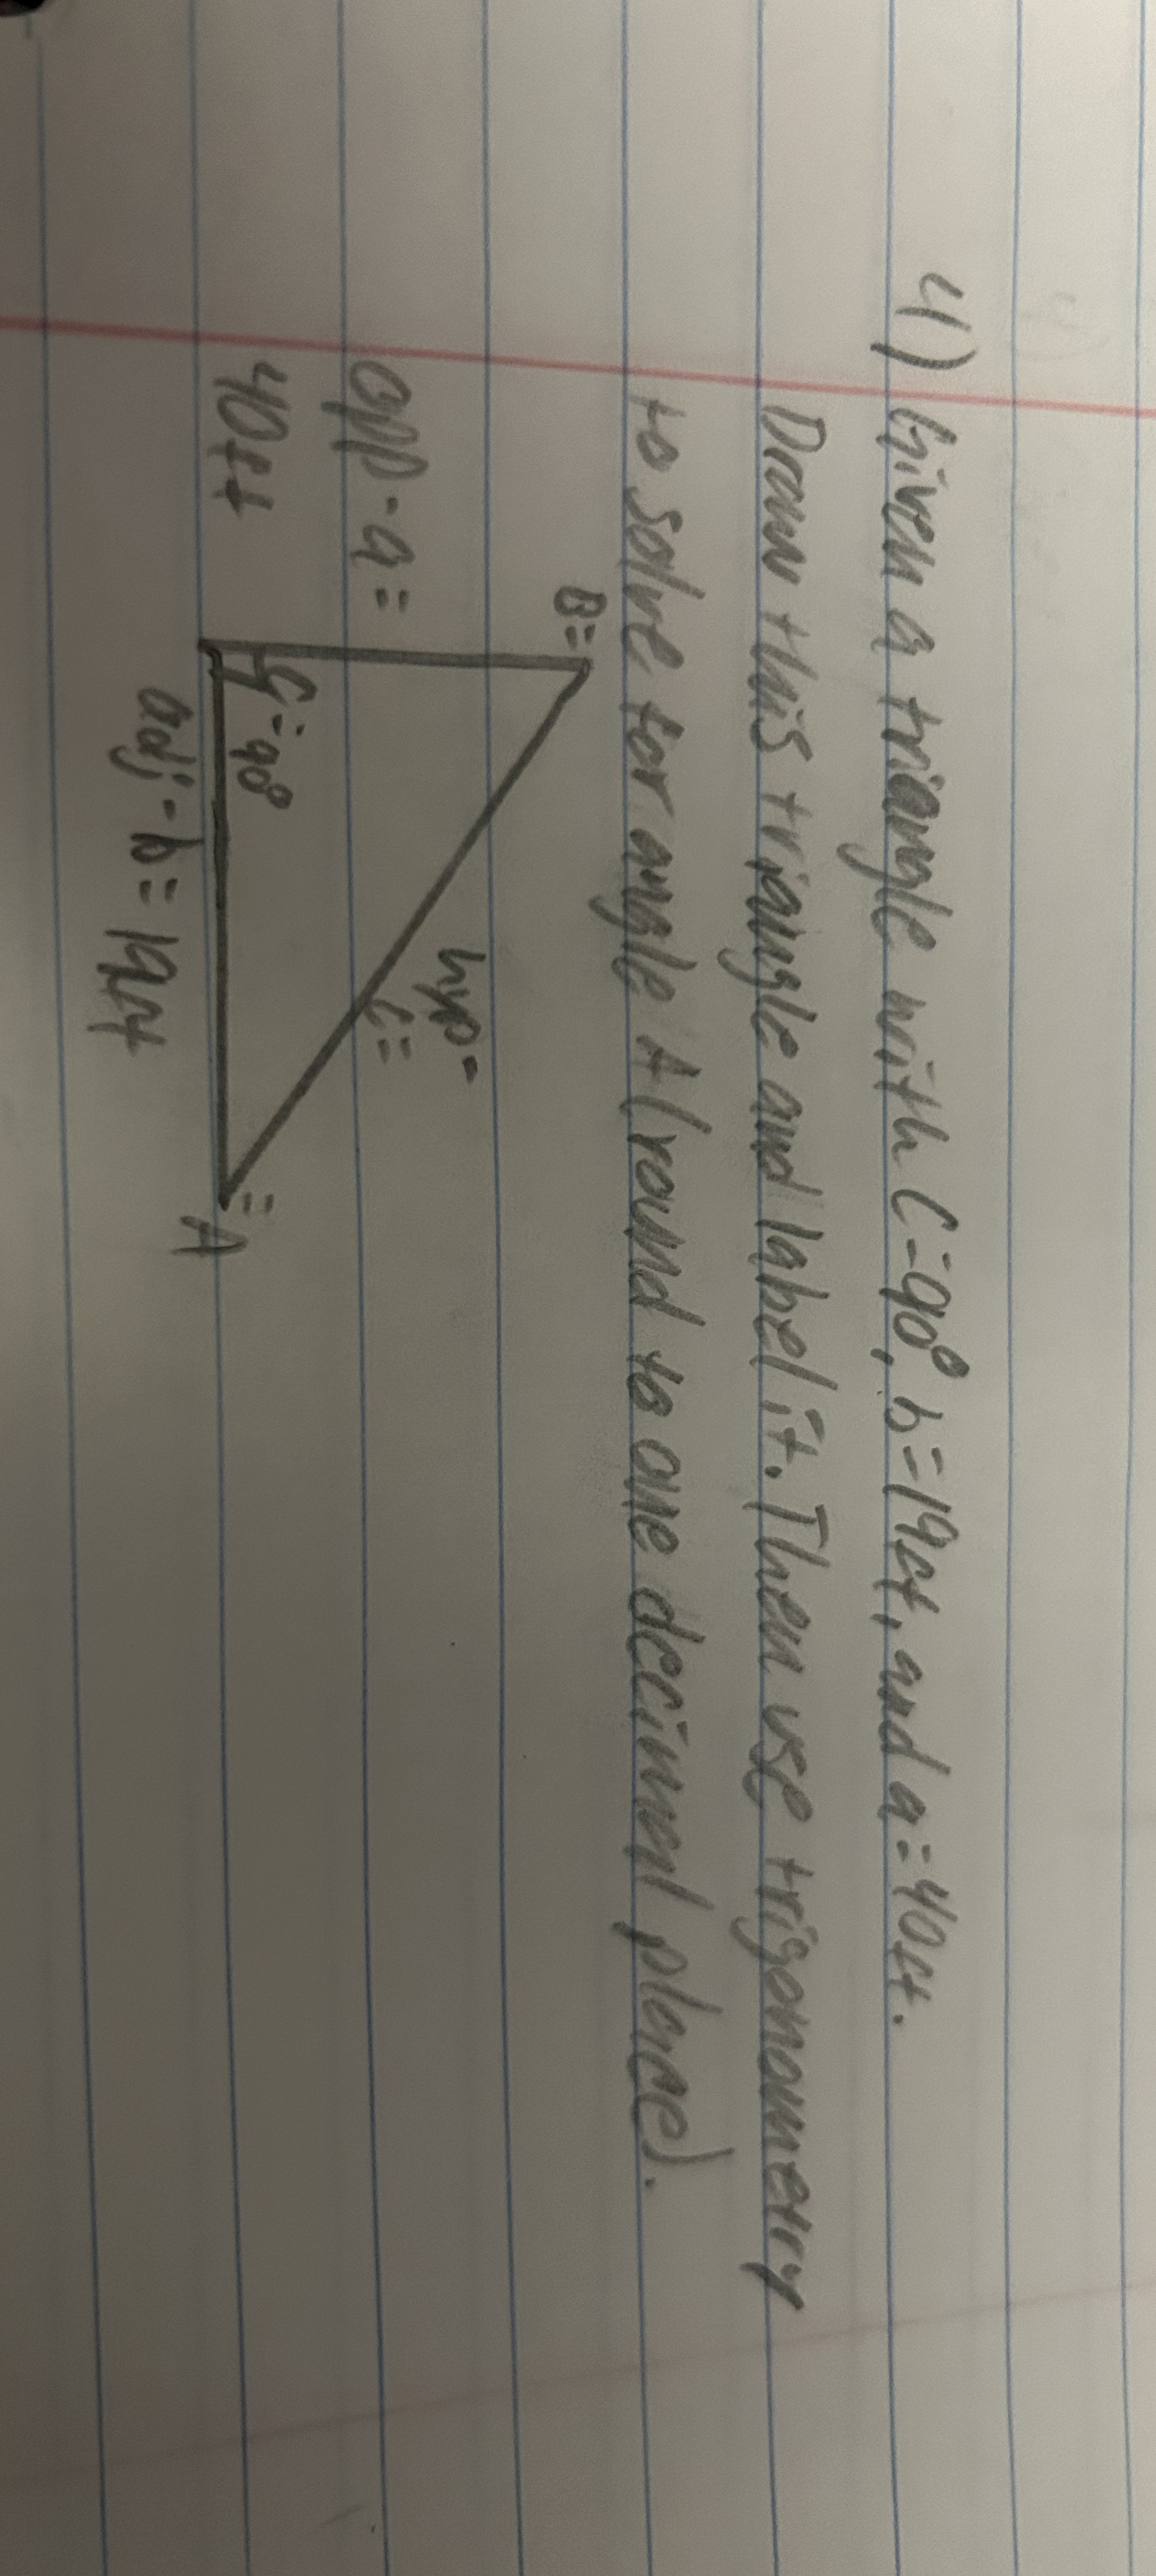 4) Given a triangle with C=90°, b=19ft, and a=40ft.
Draw this triangle and label it. Then use trigonometry
to solve for angle A (round to one decimal place).
B=
hyp-
opp-a=
c=
40ft
C=90°
=
A
adj-b=19ft